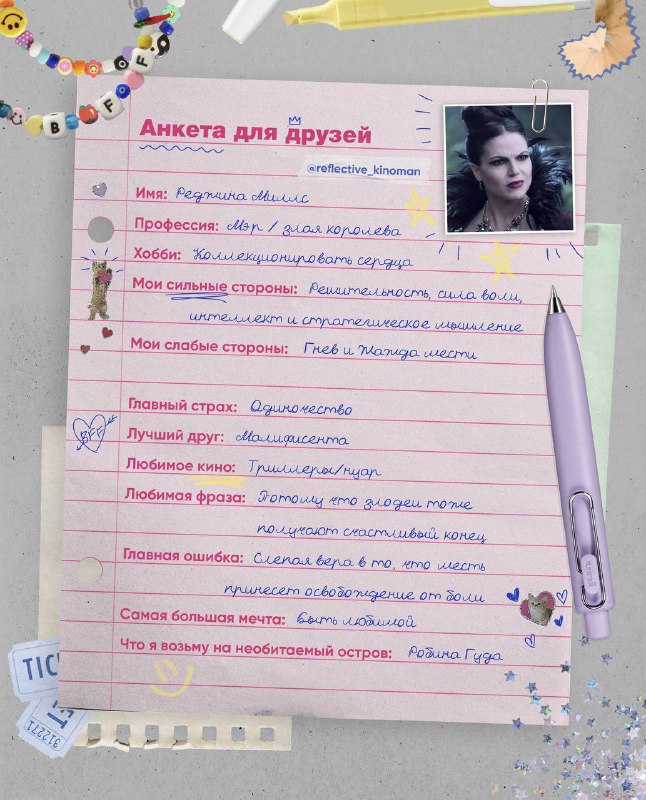 BFF
B F F
Анкета для друзей
@reflective_kinoman
Имя: Реджина Миллс
Профессия: Мэр / злая королева
Хобби: Коллекционировать сердца
Мои сильные стороны: Решительность, сила воли,
интеллект и стратегическое мышление
Мои слабые стороны: Гнев и Жажда мести
Главный страх: Одиночество
BFF
Лучший друг: Малифисента
Любимое кино: Триллеры/нуар
Любимая фраза: Потому что злодеи тоже
получают счастливый конец
Главная ошибка: Слепая вера в то, что месть
принесет освобождение от боли
Самая большая мечта: Быть любимой
Что я возьму на необитаемый остров: Робина Гуда
TIC
312271